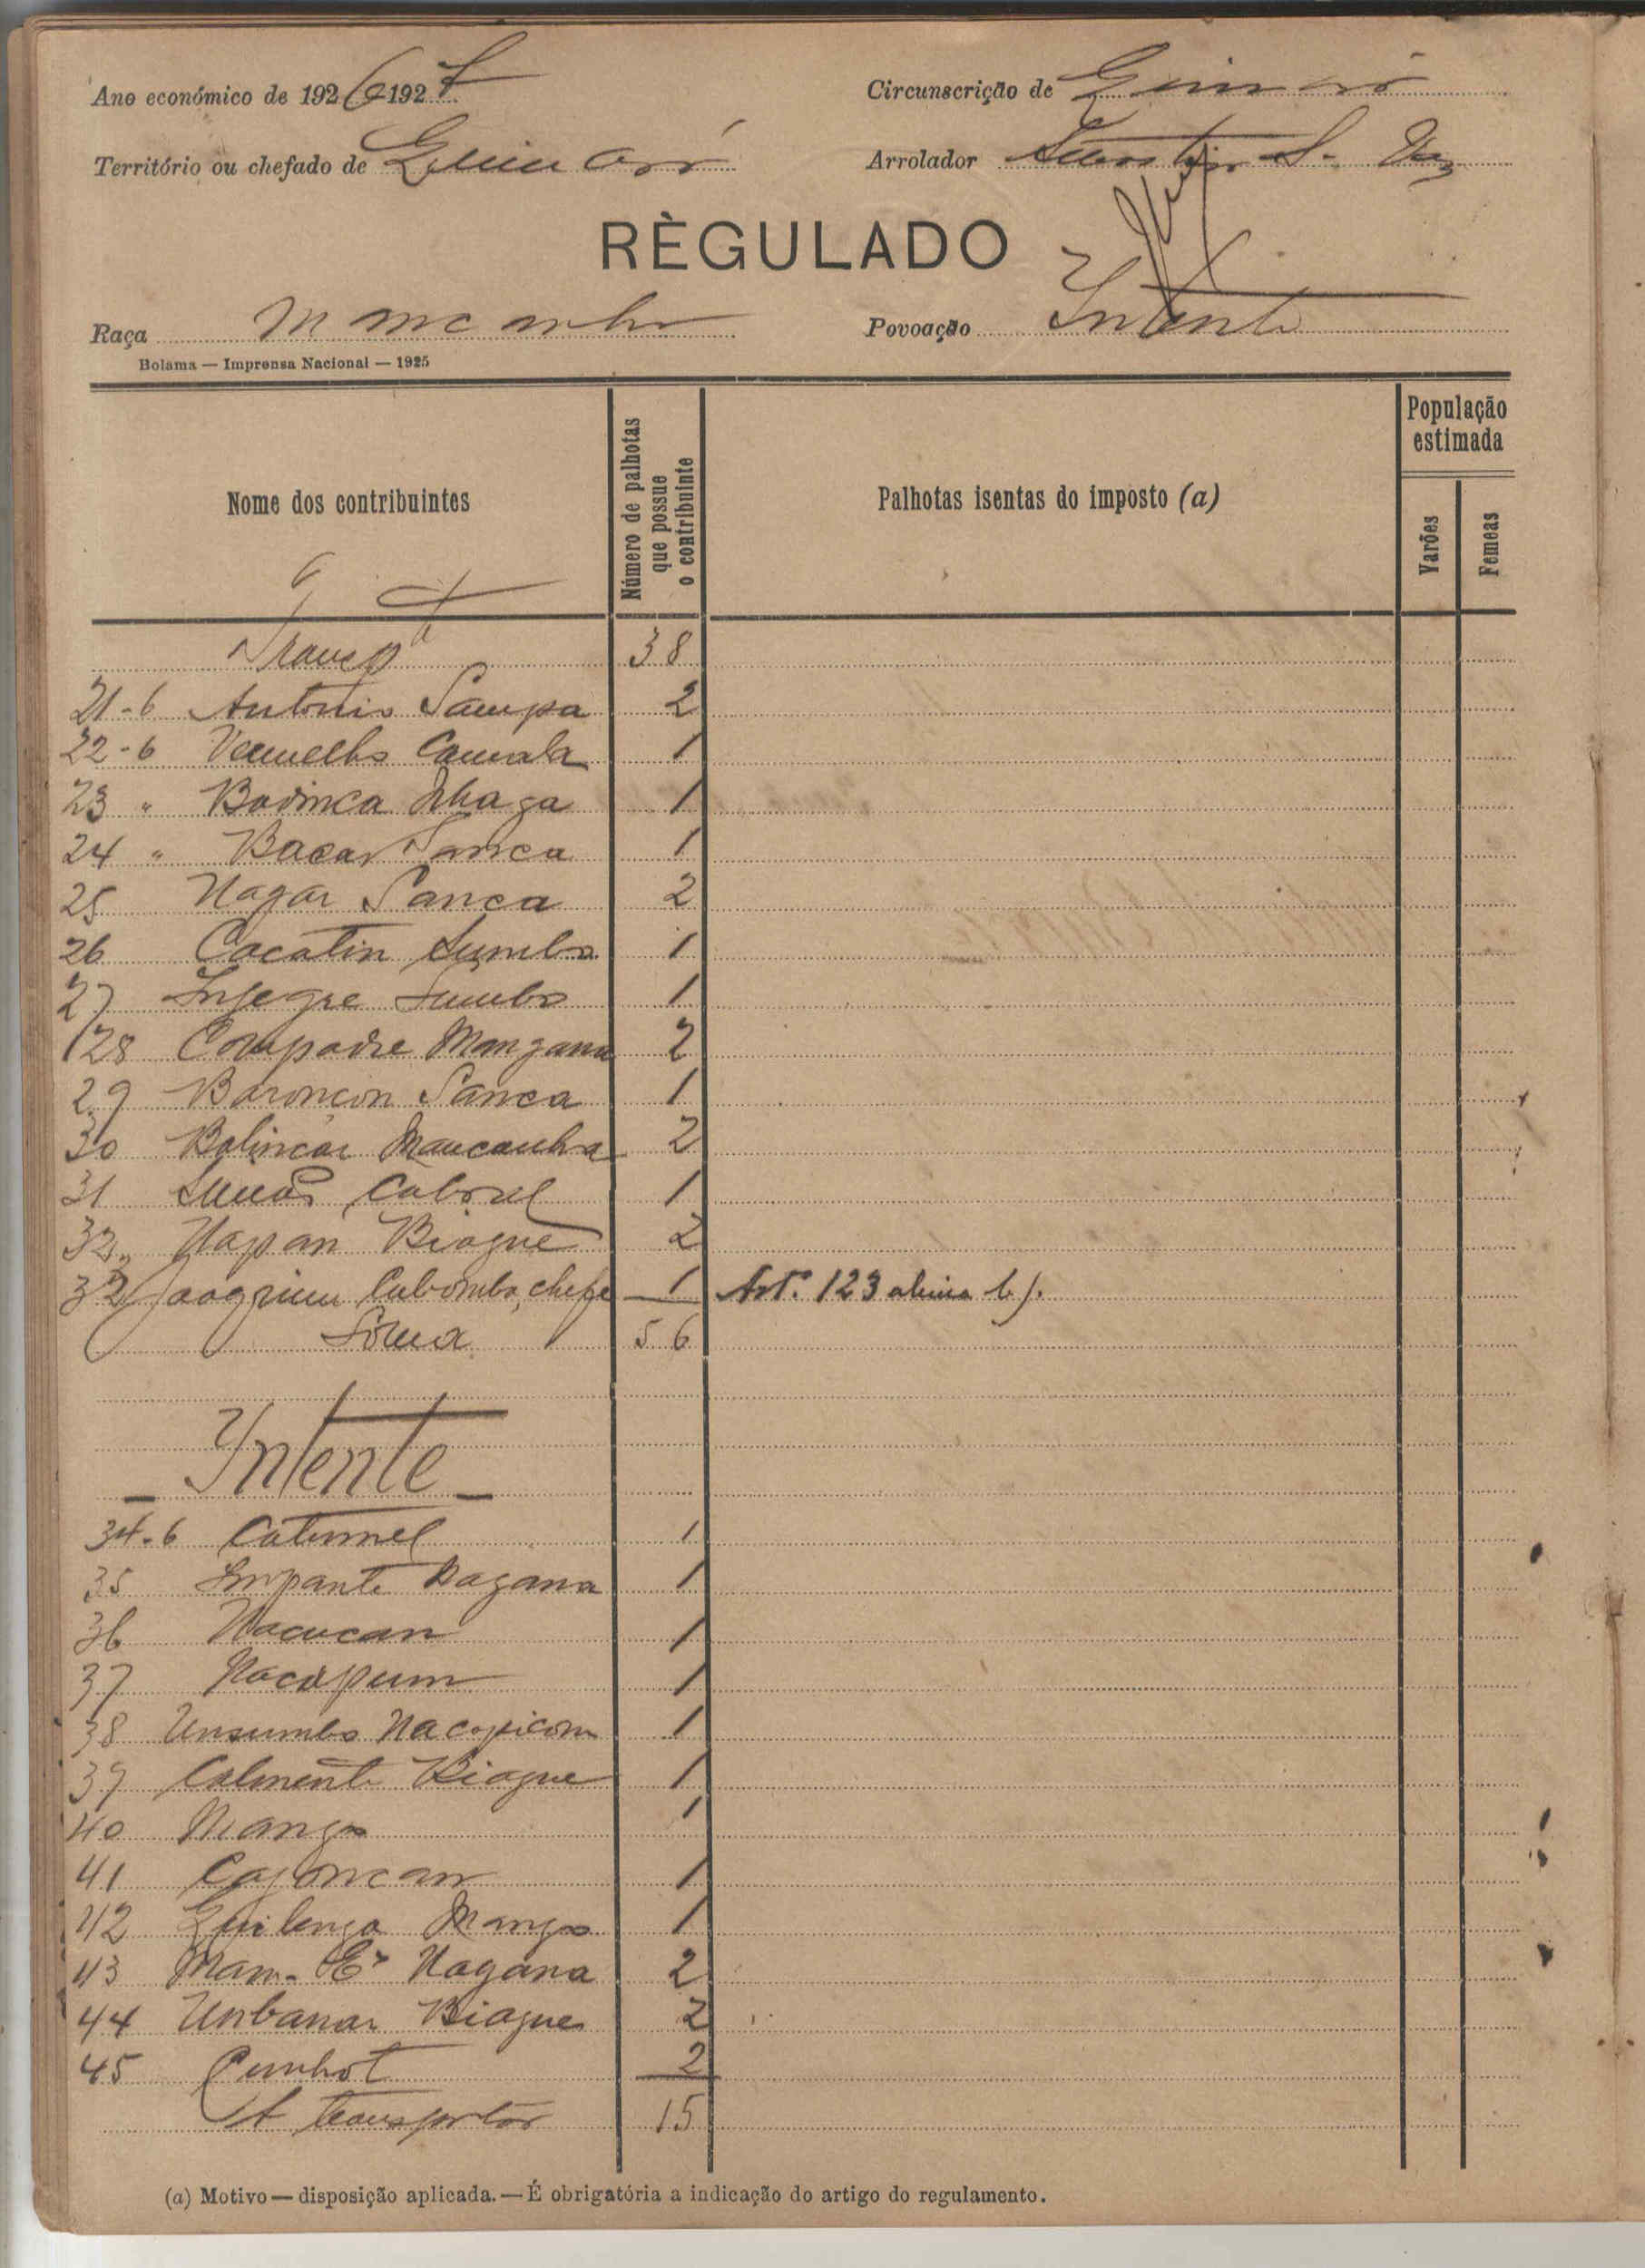 Ano económico de 1926-1927
Circunscrição de
Território ou chefado de
Arrolador
RÈGULADO
Raça Mancanha
Povoação Intente
Bolama — Imprensa Nacional — 1925
Nome dos contribuintes
Número de palhotas que possue o contribuinte
Palhotas isentas do imposto (a)
População estimada
Varões
Femeas
Transpte 38
21-6 António Sampa 2
22-6 Vermelho Camala 1
23 " Bodinca 1
24 " Bacar Sanca 1
25 Nagar Sanca 2
26 Cocatin Sumbo 1
27 Sumbo 1
28 Compadre Mangana 2
29 Baroncon Sanca 1
30 Bolincar Mancanha 2
31 Cabral 1
32 " Napan Biague 2
32 Joaquim chefe 1 Art.º 123 alinea b).
Soma 56
Intente
34-6 Catumel 1
35 Impante Dagana 1
36 Nacucan 1
37 Nacapum 1
38 Unsumbo 1
39 Calmente Biague 1
40 Mango 1
41 Cajoncan 1
42 Quilenga Mango 1
43 Mam- Nagana 2
44 Unbanar Biague 2
45 Cunhot 2
A transportar 15
(a) Motivo — disposição aplicada. — É obrigatória a indicação do artigo do regulamento.